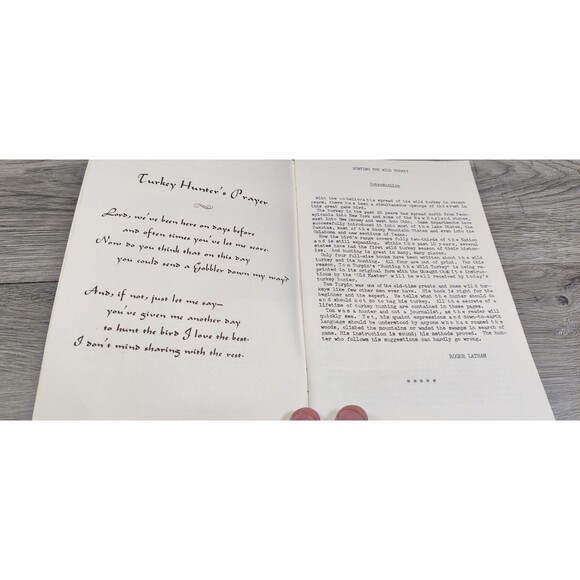 Turkey Hunter's Prayer
Lord, we've been here on days before
and often times you've let me score.
Now do you think that on this day
you could send a Gobbler down my way?
And, if not, just let me say—
you've given me another day
to hunt the bird I love the best.
I don't mind sharing with the rest.
HUNTING THE WILD TURKEY
Introduction
With the unbelievable spread of the wild turkey in recent
years, there has been a simultaneous upsurge of interest in
this great game bird.
The turkey in the past 25 years has spread north from Penn-
sylvania into New York and some of the New England states,
east into New Jersey and west into Ohio. Game departments have
successfully introduced it into most of the Lake States, the
Dakotas, most of the Rocky Mountain States and even into the
Oklahoma and new sections of Texas.
Now the bird's range covers fully two-thirds of the Nation
and is still expanding. Within the past 10 years, several
states have had the first wild turkey season of their histor-
ies. And hunting is great in many, many places.
Only four full-size books have been written about the wild
turkey and its hunting. All four are out of print. For this
reason, Tom Turpin's "Hunting the Wild Turkey" is being re-
printed in its original form with the thought that its instruc-
tions by the "Old Master" will be well received by today's
turkey hunter.
Tom Turpin was one of the old-time greats and knew wild tur-
keys like few other men ever have. His book is right for the
beginner and the expert. He tells what the hunter should do
and should not do to bag his turkey. All the secrets of a
lifetime of turkey hunting are contained in this book.
Tom was a hunter and not a journalist, as the reader will
quickly see. Yet, his quaint expressions and down-to-earth
language should be understood by anyone who has roamed the
woods, climbed the mountains or waded the swamps in search of
game. His instruction is sound; his methods proved. The hun-
ter who follows his suggestions can hardly go wrong.
ROGER LATHAM
*****